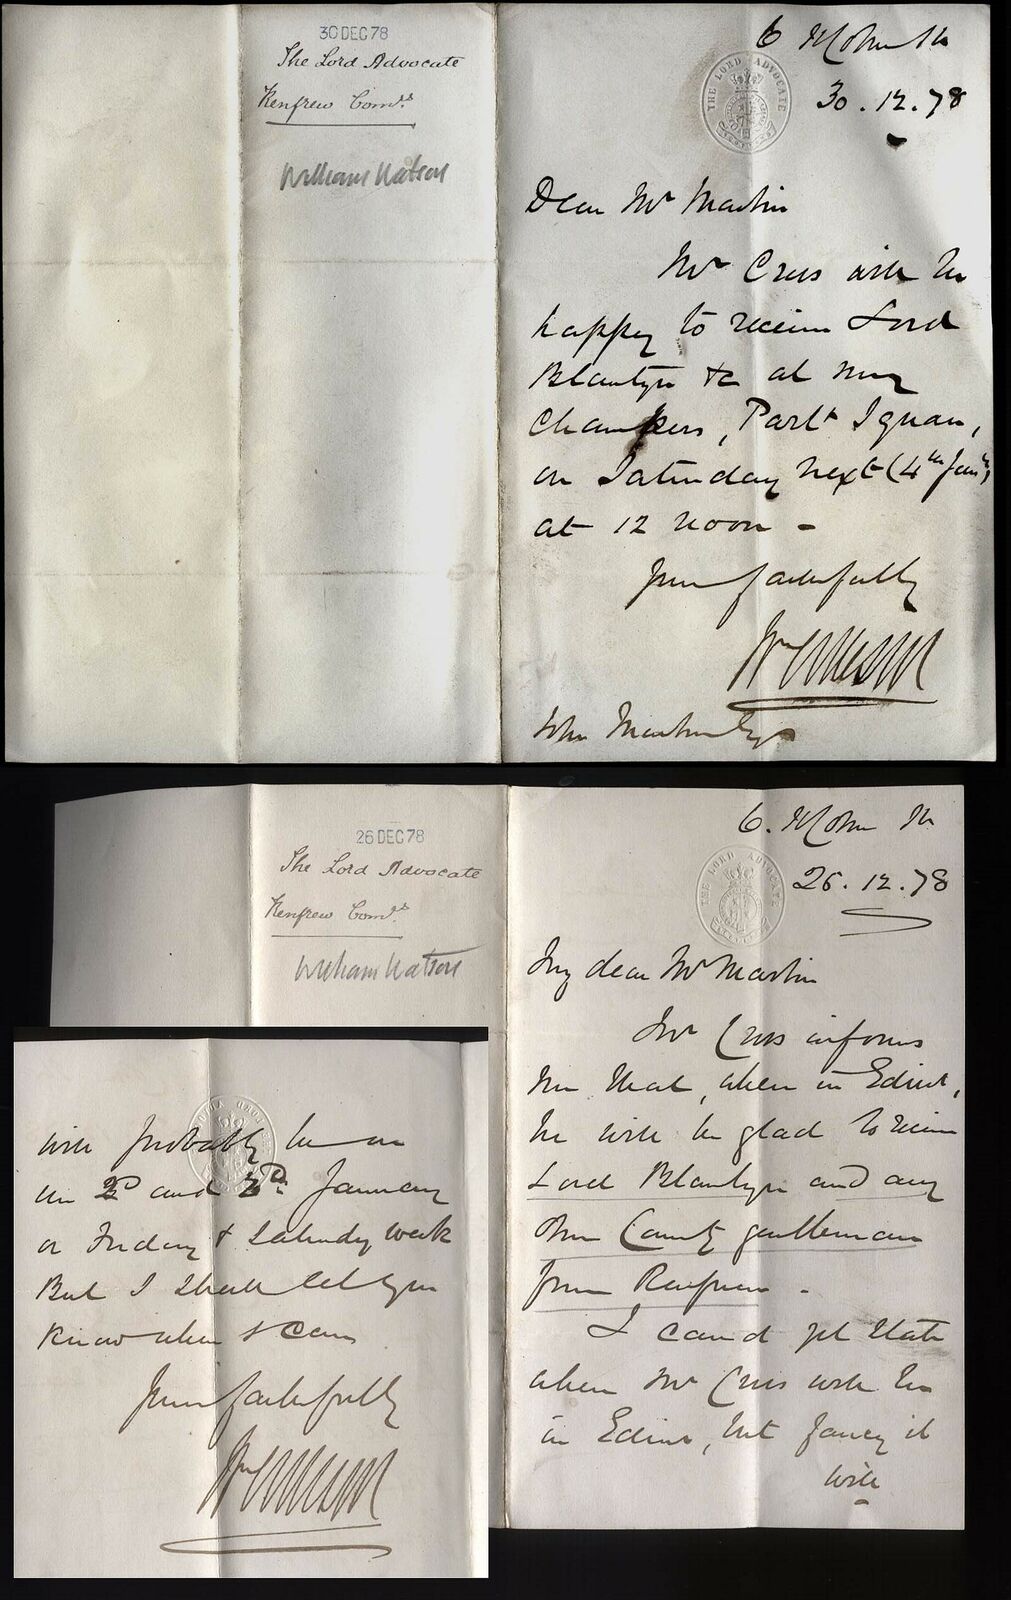 30 DEC 78
The Lord Advocate
Renfrew Comrs
William Watson
THE LORD ADVOCATE
30.12.78
Dear Mr Martin
Mr Cross will be
happy to receive Lord
Blantyre &c at my
Chambers, Parlt Square,
on Saturday next (4th Jany)
at 12 noon -
Yours faithfully
Wm Watson
John Martin Esq
26 DEC 78
The Lord Advocate
Renfrew Comrs
William Watson
THE LORD ADVOCATE
26.12.78
My dear Mr Martin
Mr Cross informs
me that, when in Edinr,
he will be glad to receive
Lord Blantyre and any
other County gentleman
from Renfrew.
I cannot yet state
when Mr Cross will be
in Edinr, but fancy it
will
will probably be on
the and January
or Friday & Saturday week
But I shall let you
know when I can
Yours faithfully
Wm Watson